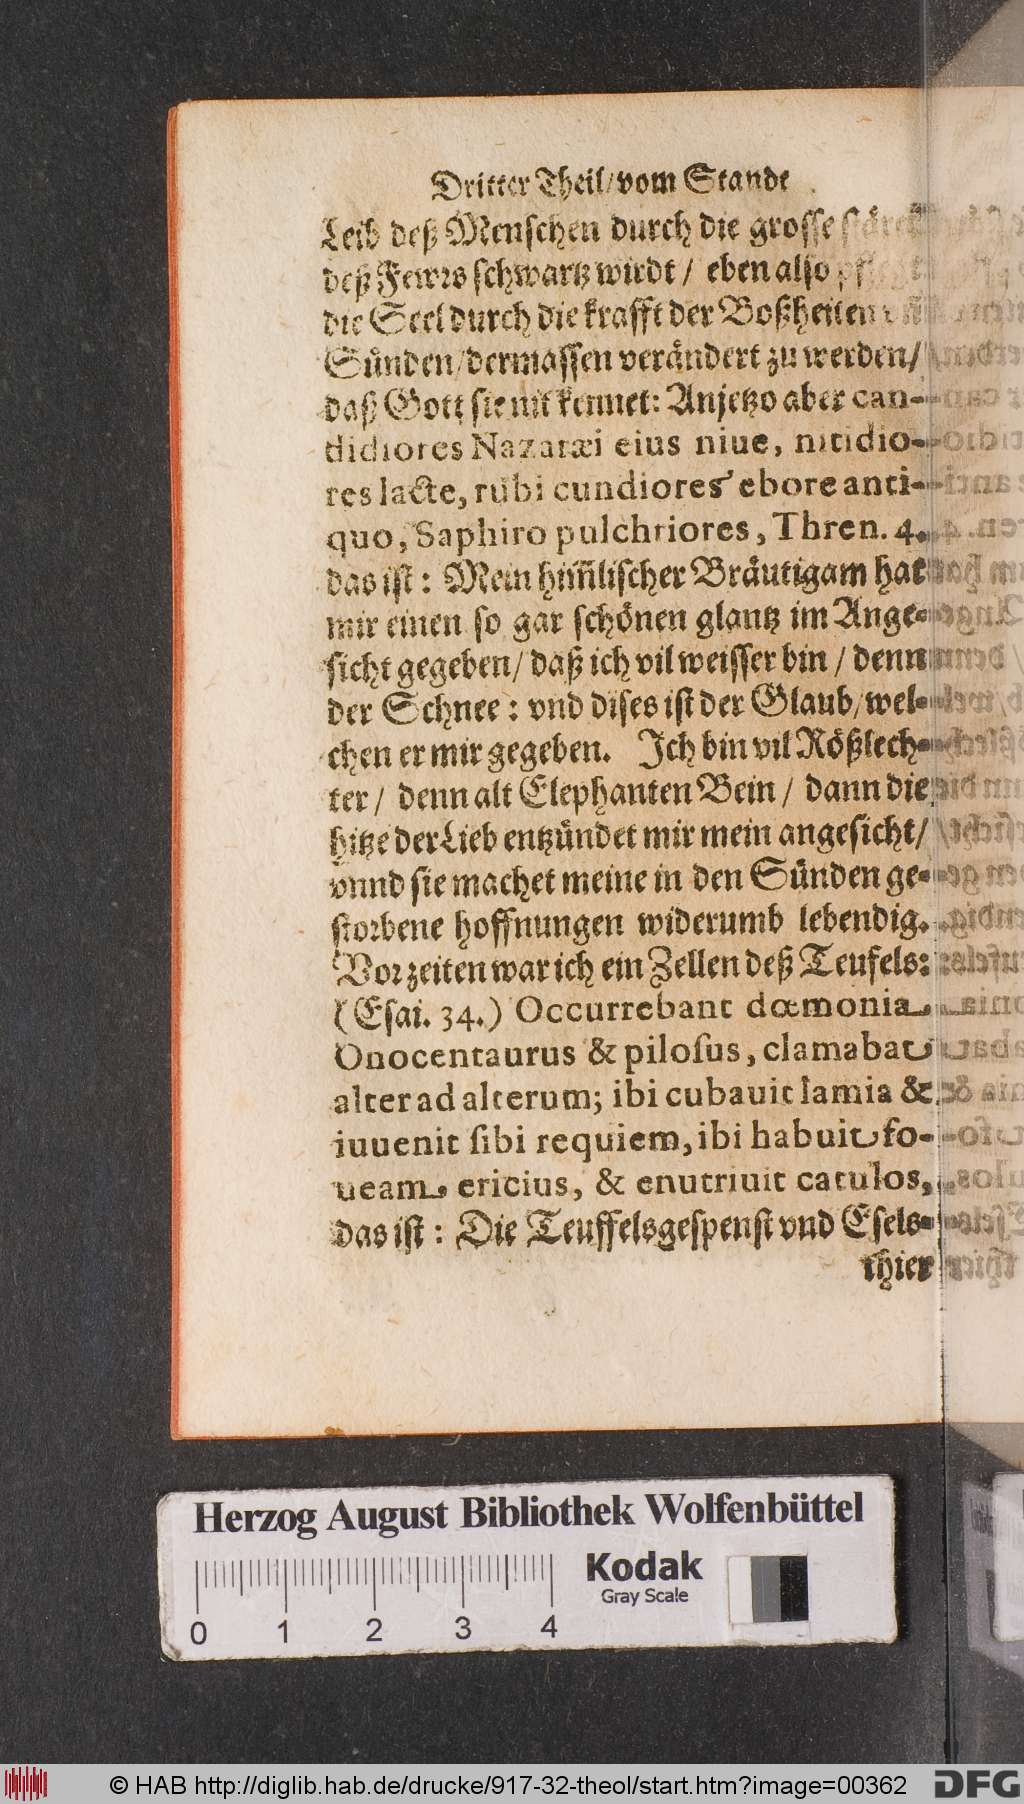 Dritter Theil/vom Stande
Leib deß Menschen durch die grosse
deß Fewrs schwartz wirdt / eben also
die Seel durch die krafft der Boßheiten
Sünden/dermassen verändert zu werden/
daß Gott sie nit kennet: Anjetzo aber can-
didiores Nazaræi eius niue, nitidio-
res lacte, rubi cundiores ebore anti-
quo, Saphiro pulchriores, Thren. 4.
das ist: Mein him̃lischer Bräutigam hat
mir einen so gar schönen glantz im Ange-
sicht gegeben/ daß ich vil weisser bin / denn
der Schnee: vnd dises ist der Glaub/wel-
chen er mir gegeben. Ich bin vil Rößlech-
ter / denn alt Elephanten Bein / dann die
hitze der Lieb entzündet mir mein angesicht/
vnnd sie machet meine in den Sünden ge-
storbene hoffnungen widerumb lebendig.
Vorzeiten war ich ein Zellen deß Teufels:
(Esai. 34.) Occurrebant dæmonia
Onocentaurus & pilosus, clamabat
alter ad alterum; ibi cubauit lamia &
iuuenit sibi requiem, ibi habuit fo-
ueam ericius, & enutriuit catulos,
das ist: Die Teuffelsgespenst vnd Esels-
thier
Herzog August Bibliothek Wolfenbüttel
Kodak
Gray Scale
0 1 2 3 4
© HAB http://diglib.hab.de/drucke/917-32-theol/start.htm?image=00362 DFG